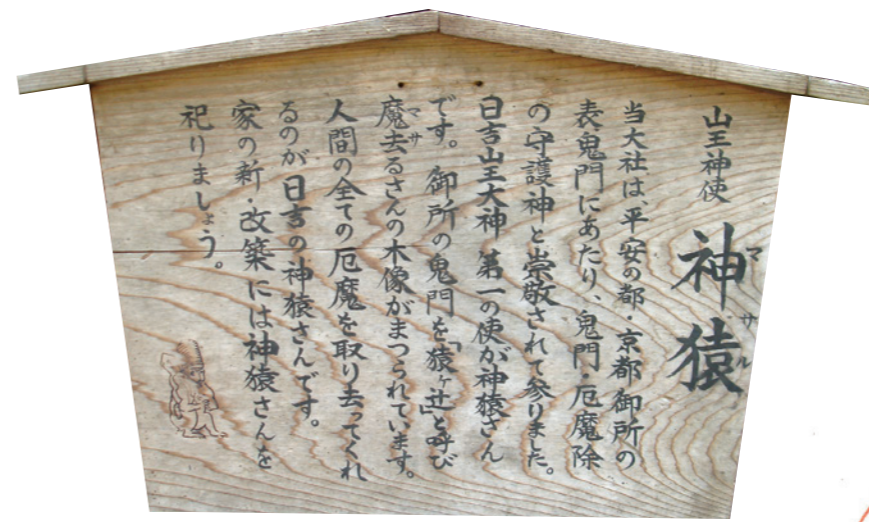 山王神使
神猿
マサル
当大社は、平安の都・京都御所の
表鬼門にあたり、鬼門・厄魔除
の守護神と崇敬されて参りました。
日吉山王大神 第一の使が神猿さん
です。御所の鬼門を「猿ヶ辻」と呼び
魔去るさんの木像がまつられています。
マサ
人間の全ての厄魔を取り去ってくれ
るのが日吉の神猿さんです。
家の新・改築には神猿さんを
祀りましょう。